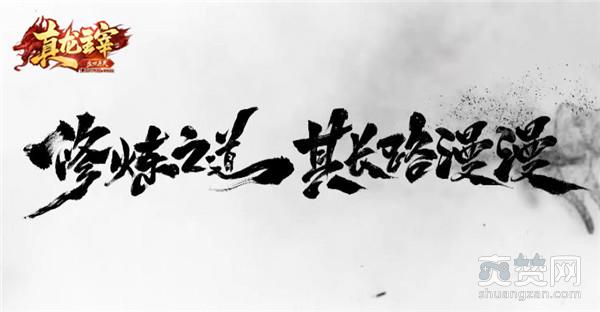 真龙主宰
修炼之道 其长路漫漫
爽赞网
shuangzan.com